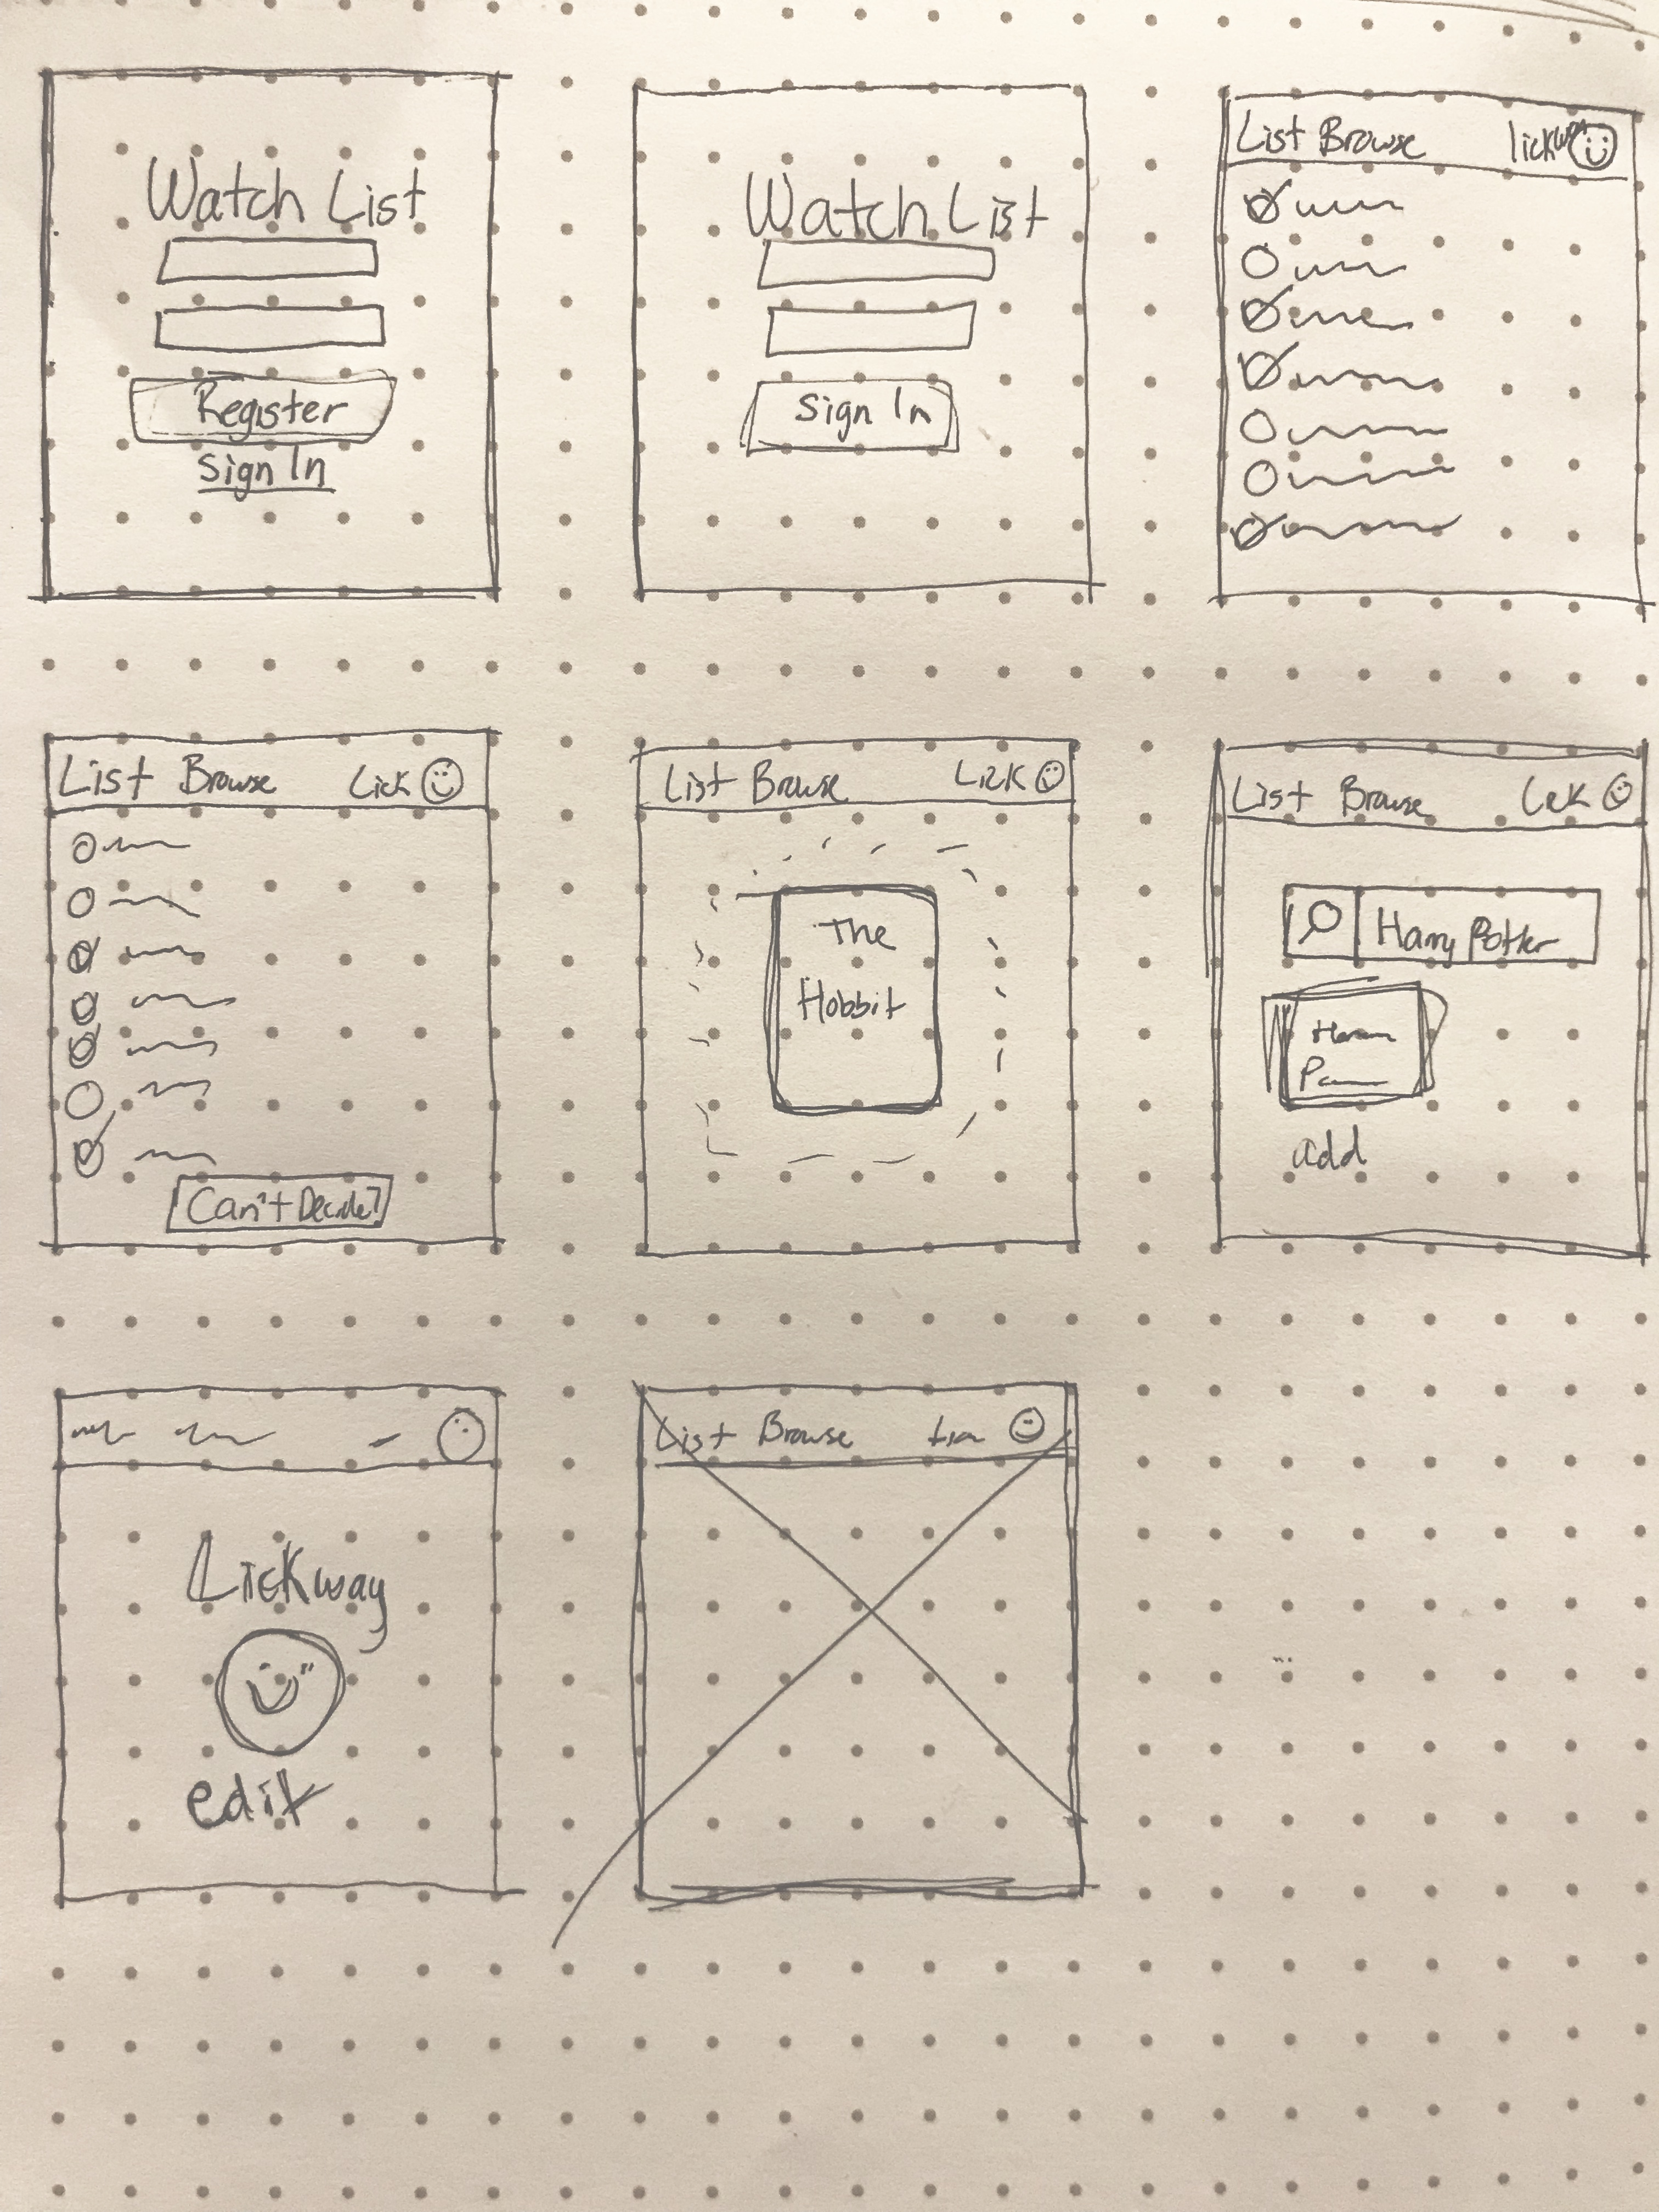 Watch List
Register
Sign In
Watch List
Sign In
List Browse
List Browse Lick
Can't Decide?
List Browse Lick
The
Hobbit
List Browse
Harry Potter
add
Lickway
edit
List Browse